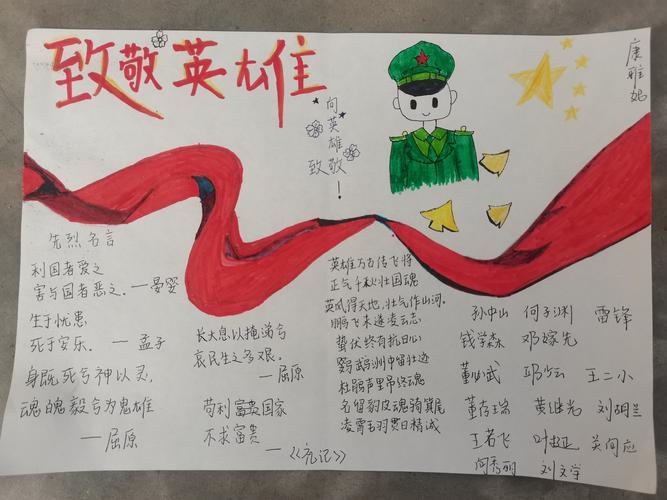 致敬英雄
向英雄
致敬！
康雅妮
先烈名言
利国者爱之
害与国者恶之.——晏婴
生于忧患
死于安乐. ——孟子
身既死兮神以灵,
魂魄毅兮为鬼雄
——屈原
长太息以掩涕兮
哀民生之多艰.
——屈原
苟利富贵国家
不求富贵
——《礼记》
英雄万古传飞将
正气千秋壮国魂
英风得天地,壮气作山河.
鹏飞未遂凌云志
蛰伏终有抗日心
鹦鹉洲中留壮迹
杜鹃声里吊终魂
名留豹皮魂骑箕尾
凌霄毛羽贯日精诚
孙中山 何子渊 雷锋
钱学森 邓嫁先
董必武 王二小
董存瑞 黄继光 刘胡兰
王若飞 叶挺 关向应
闫秀丽 刘文学